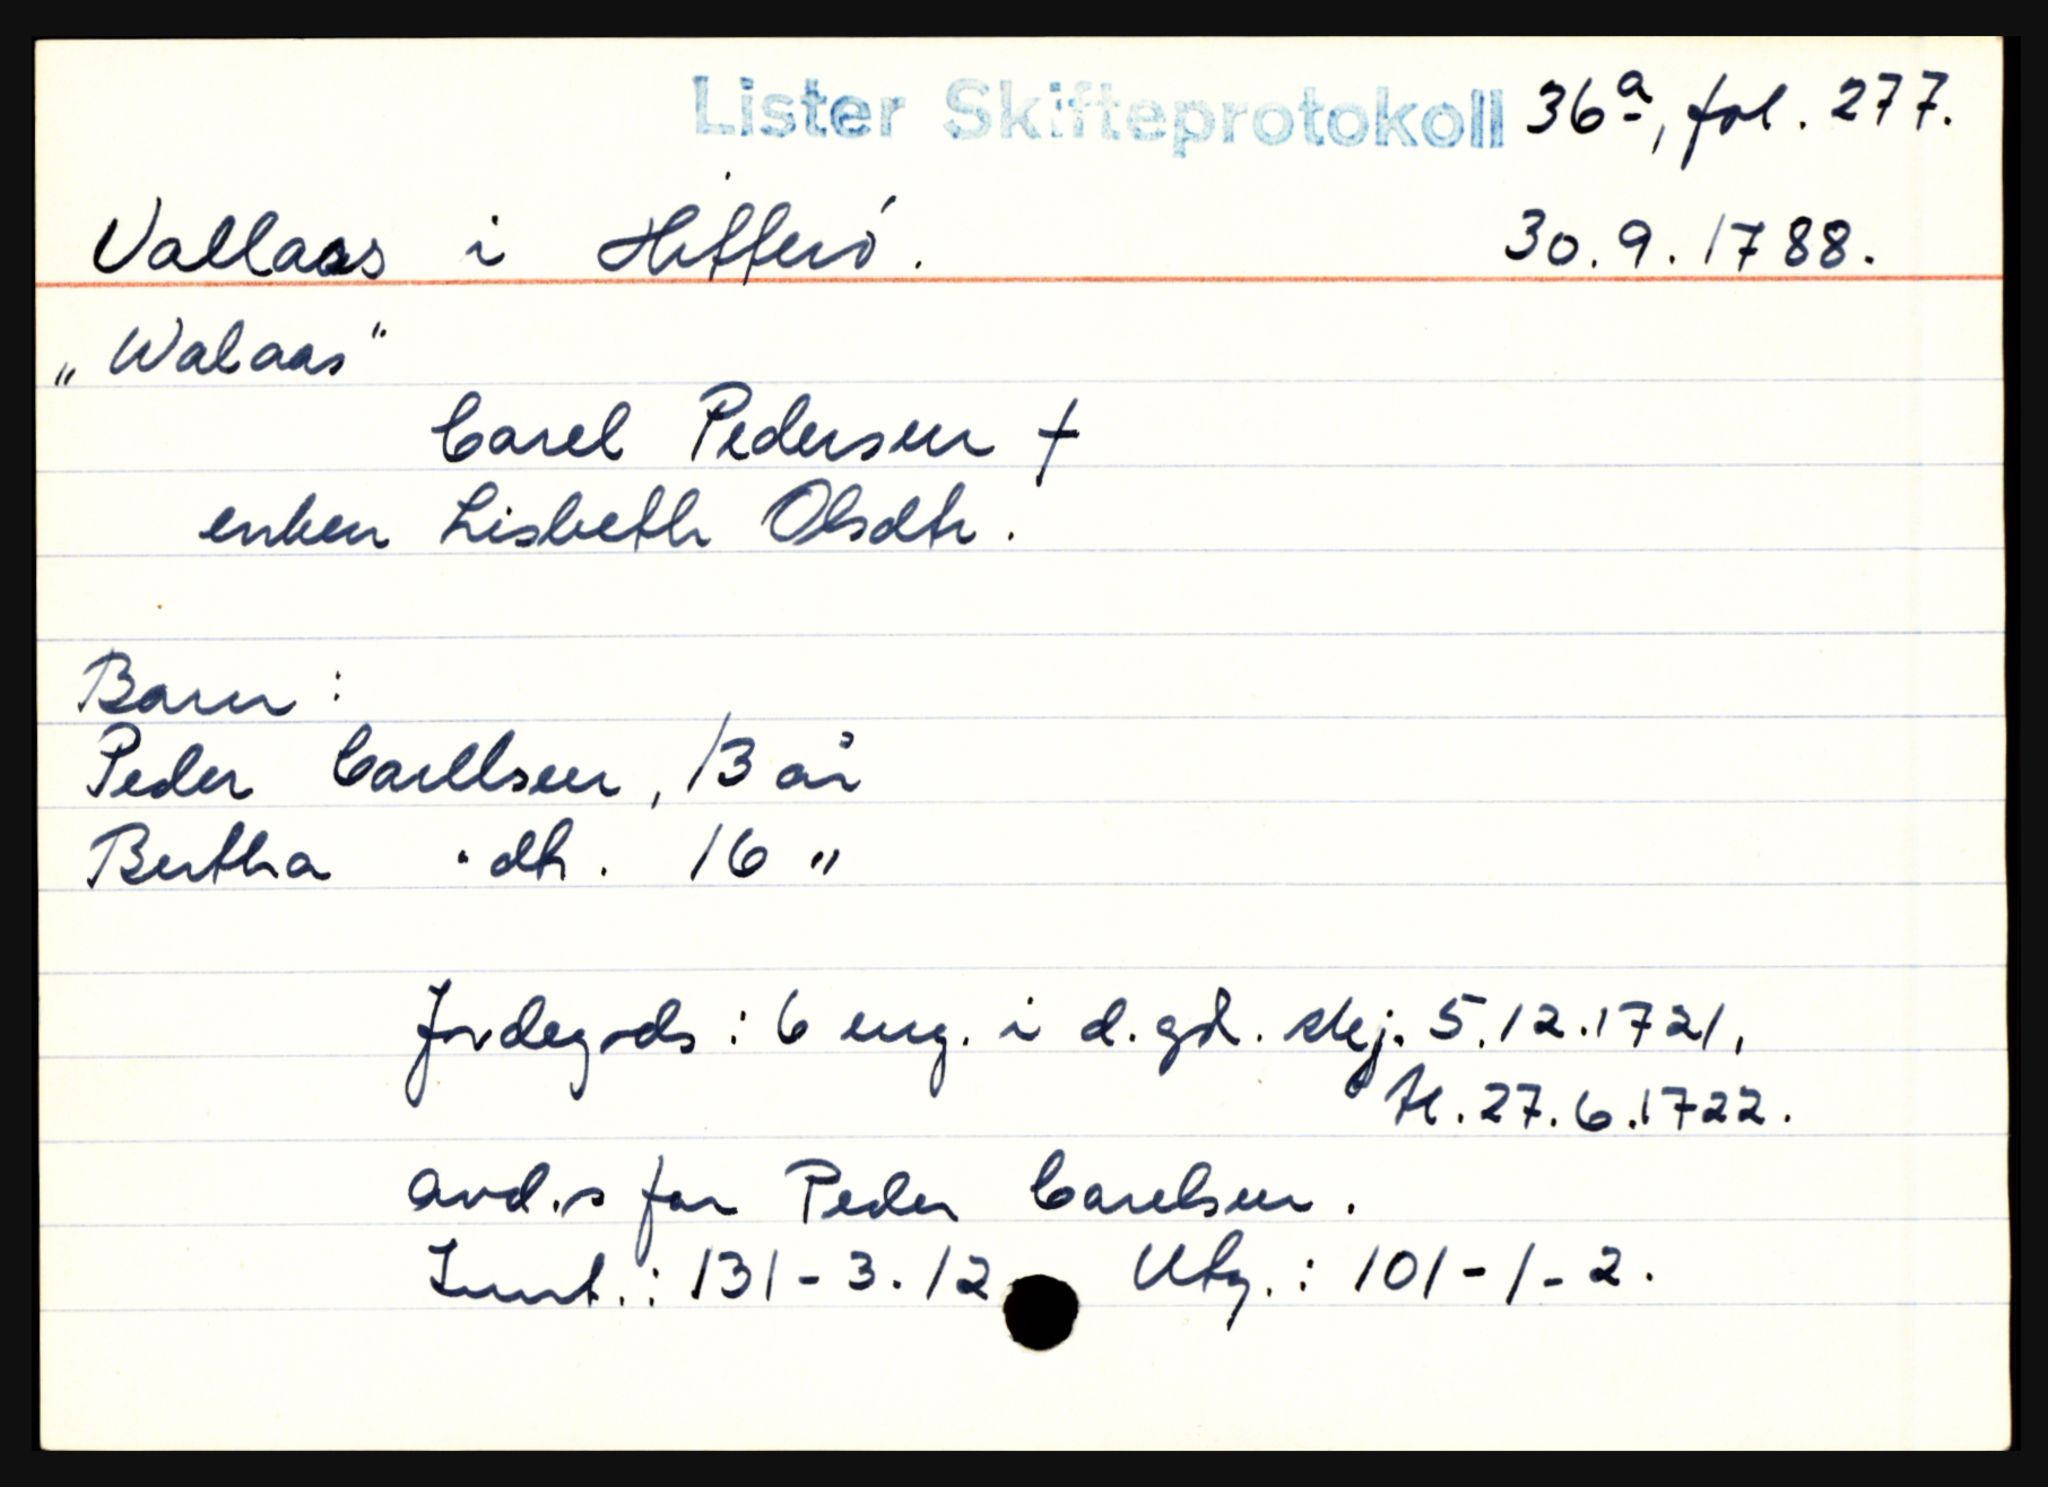 Lister Skifteprotokoll 36a, fol. 277.
Vallaas i Hitterø. 30.9.1788.
„Walaas"
Carel Pedersen †
enken Lisbeth Olsdtr.
Barn:
Peder Carllsen, 13 år
Bertha " dtr. 16 "
Jordegods: 6 eng. i d. gd. skj. 5.12.1721,
tl. 27.6.1722.
avd.s far Peder Carelsen.
Innt.: 131-3.12 Utg.: 101-1-2.